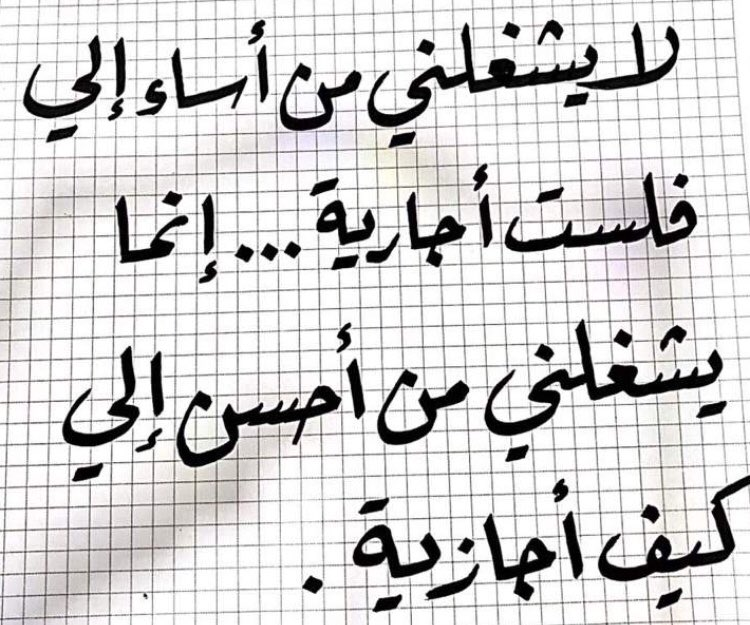 لا يشغلني من أساء إلي
فلست أجارية ... إنما
يشغلني من أحسن إلي
كيف أجازية .